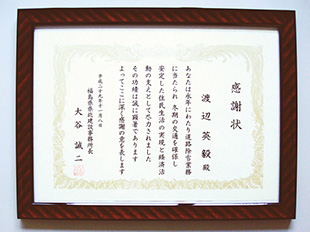 感謝状
渡辺英毅殿
あなたは永年にわたり道路除雪業務
に当たられ 冬期の交通を確保し
安定した住民生活の実現と経済活
動の支えとして尽力されました
その功績は誠に顕著であります
よってここに深く感謝の意を表します
平成二十九年十一月八日
福島県県北建設事務所長
大谷誠二